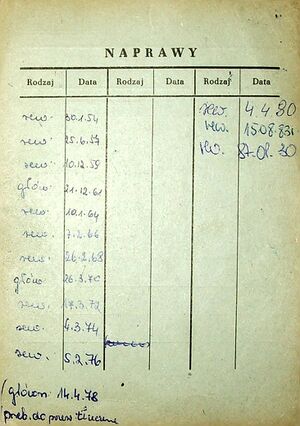 NAPRAWY
Rodzaj Data Rodzaj Data Rodzaj Data
rew. 30.1.54
rew. 25.6.57
rew. 10.12.59
główn. 21.12.61
rew. 10.1.64
rew. 7.2.66
rew. 26.2.68
główn. 26.3.70
rew. 17.3.72
rew. 4.3.74
rew. 5.2.76
główn 14.4.78
rew. 4.4.30
rew. 15.08.83
rew. 87.01.30